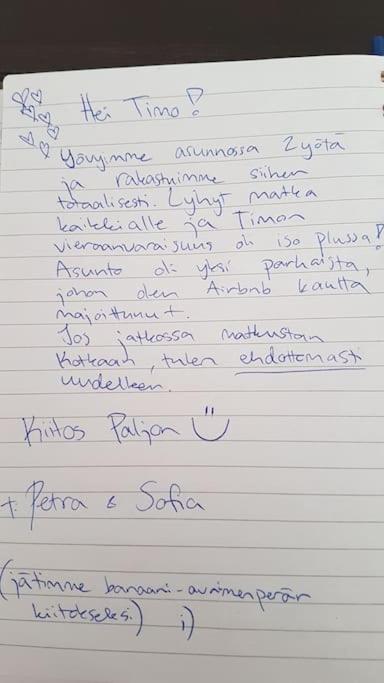 Hei Timo!
Yövyimme asunnossa 2 yötä
ja rakastuimme siihen
totaalisesti. Lyhyt matka
kaikkialle ja Timon
vieraanvaraisuus oli iso plussa!
Asunto oli yksi parhaista,
johon olen Airbnb kautta
majoittunut.
Jos jatkossa matkustan
Kotkaan, tulen ehdottomasti
uudelleen.
Kiitos Paljon
t. Petra & Sofia
(jätimme banaani-avaimenperän
kiitokseksi) ;)